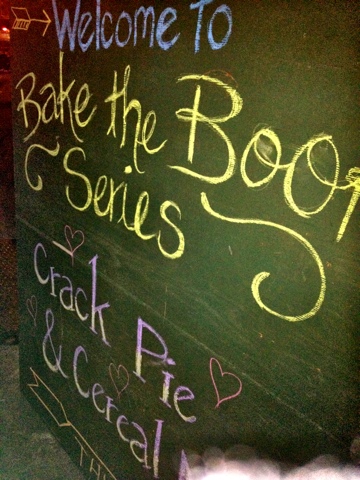 Welcome To
Bake the Boo
Series
Crack Pie
& Cereal